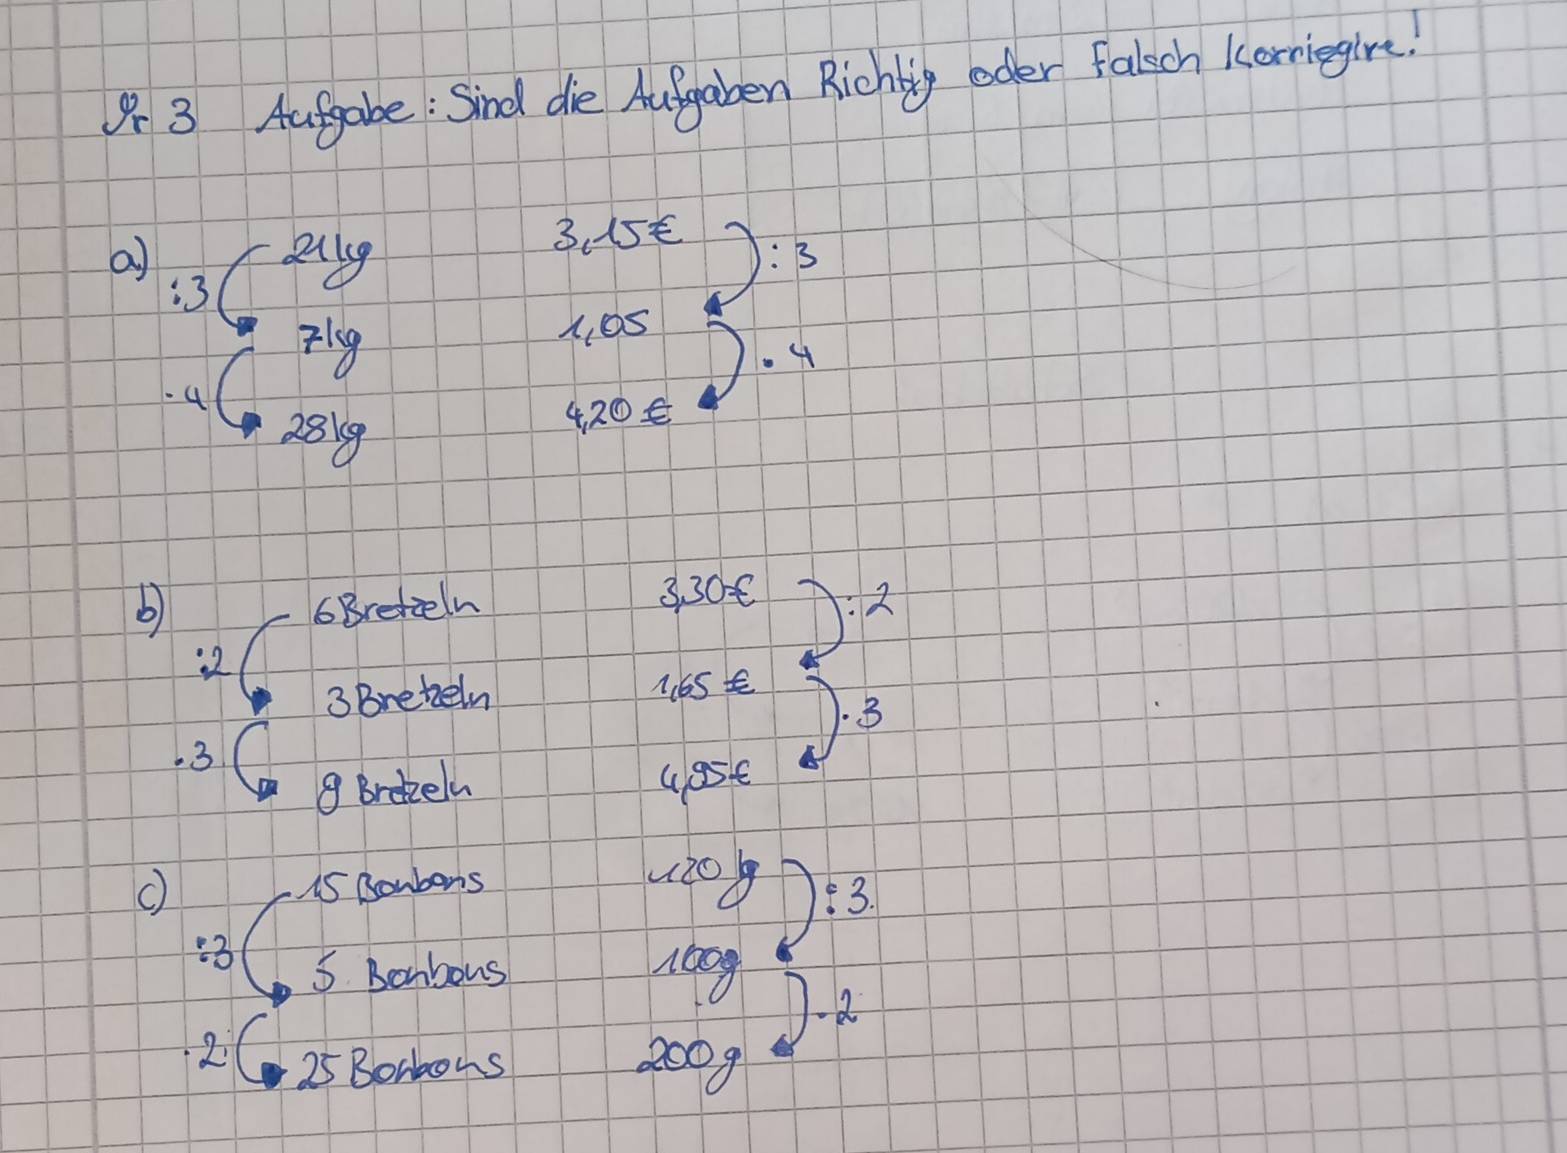 Nr 3 Aufgabe: Sind die Aufgaben Richtig oder falsch Korriegire!
a) :3 21kg 3,15€ :3
7kg 1,05
·4 28kg 4,20€ ·4
b) 6Bretzeln 3,30€ :2
:2 3Bretzeln 1,65€
·3 9 Bretzeln 4,95€ ·3
c) 15 Bonbons 120g :3.
:3 5 Bonbons 100g
·2 25 Bonbons 200g ·2